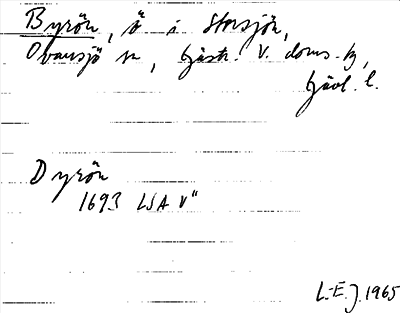 Byrön, ö i Storsjön,
Ovansjö sn, Gästr. V. doms. hg,
Gävl. l.
Dyrön
1693 LSA V"
L-E. J. 1965